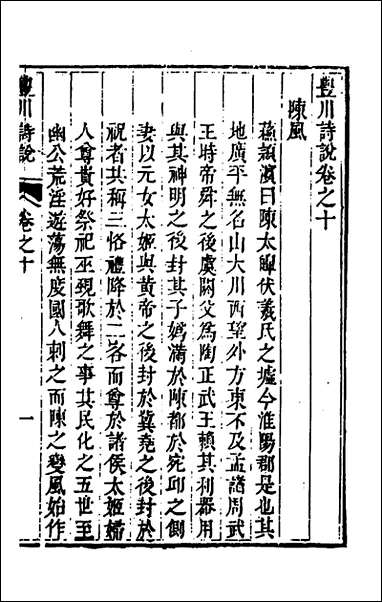 豐川詩說卷之十
陳風
蘇潁濱曰陳太皥伏羲氏之墟今淮陽郡是也其
地廣平無名山大川西望外方東不及孟諸周武
王時帝舜之後虞閼父為陶正武王賴其利器用
與其神明之後封其子媯滿於陳都於宛邱之側
妻以元女太姬與黃帝之後封於薊堯之後封於
祝者共稱三恪禮降於二客而尊於諸侯太姬婦
人尊貴好祭祀巫覡歌舞之事其民化之五世至
幽公荒淫遊蕩無度國人刺之而陳之變風始作
豐川詩說
卷之十
一